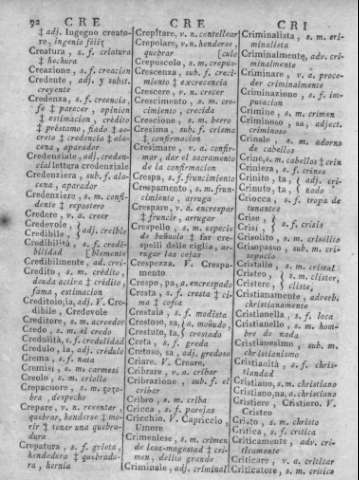 92 CRE CRE CRI
‡ adj. Ingegno creato-
ro, ingenio feliz
Creatura, s. f. criatura
‡ hechura
Creazione, s. f. creacion
Credente, adj. y subst.
creyente
Credenza, s. f. creencia,
fe ‡ parecer, opinion
‡ estimacion, crédito
‡ préstamo, fiado ‡ se-
creto ‡ credencia ‡ ala-
cena, aparador
Credenziale, adj. creden-
cial lettera credenziale
Credenziera, sub. f. ala-
cena, aparador
Credenziero, s. m. confi-
dente ‡ repostero
Credere, v. a. creer
Credevole, } adj. creible
Credibile,
Credibilità, s. f. credi-
bilidad [blemente
Credibilmente, ad. crei-
Credito, s. m. crédito,
deuda activa ‡ crédito,
fama, estimacion
Creditoio, ia, adj. V. Cre-
dibile, Credevole
Creditore, s. m. acreedor
Credo, s. m. el credo
Credulità, s. f. credulidad
Credulo, ia, adj. crédulo
Crema, s. f. nata
Cremisi, s. m. carmesí
Creolo, s. m. criollo
Crepacuore, s. m. zozo-
bra, despecho
Crepare, v. n. reventar,
quebrar, henderse ‡ mo-
rir ‡ tener una quebra-
dura
Crepatura, s. f. grieta,
hendedura ‡ quebradu-
ra, hernia
Crepitare, v. n. centellear
Crepolare, v. n. henderse,
quebrar [culo
Crepuscolo, s. m. crepus-
Crescenza, sub. f. creci-
miento ‡ excrecencia
Crescere, v. n. crecer
Crescimento, s. m. cre-
cimiento, crecida
Crescione, s. m. berro
Cresima, sub. f. crisma
‡ confirmacion
Cresimare, v. a. confir-
mar, dar el sacramento
de la confirmacion
Crespa, s. f. fruncimiento
Crespamento, s. m. frun-
cimiento, arruga
Crespare, v. a. encrespar
‡ fruncir, arrugar
Crespello, s. m. especie
de buñuelo ‡ far cre-
spelli delle ciglia, ar-
rugar las cejas
Crespezza. V. Crespa-
mento
Crespo, pa, a. encrespado
Cresta, s. f. cresta ‡ ci-
ma ‡ cofia
Crestaia, s. f. modista
Crestoso, sa, ‡ a. moñudo,
Crestuto, ta, § crestado
Creta, s. f. greda
Cretoso, ta, adj. gredoso
Criare. V. Creare.
Cribrare, v. a. cribar
Cribrazione, sub. f. el
cribar
Cribro, s. m. criba
Cricca, s. f. parejas
Cricchio. V. Capriccio,
Umore
Crimenlese, s. m. crimen
de lesa-magestad ‡ cri-
men, delito grande
Criminale, adj. criminal
Criminalista, s. m. cri-
minalista
Criminalmente, adv. cri-
minalmente
Criminare, v. a. proce-
der criminalmente
Criminazione, s. f. im-
putacion
Crimine, s. m. crimen
Criminoso, sa, adject.
criminoso
Crinale, s. m. adorno
de cabellos
Crine, s. m. cabellos ‡ crin
Criniera, s. f. crines
Crinito, ta, } adj. cri-
Crinuto, ta, nado
Criocca, s. f. tropa de
tunantes
Crise, } s. f. crisis
Crisi,
Crisolito, s. m. crisólito
Crisopasso, sub. m. cri-
sopacio
Cristallo, s. m. cristal
Cristeo, } s. m. clister,
Cristere, clistel
Cristianamente, adverb.
christianamente
Cristianella, s. f. loca
Cristianello, s. m. hom-
bre de nada
Cristianesimo, sub. m.
christianismo
Cristianità, s. f. chris-
tiandad
Cristiano, s. m. christiano
Cristiano, na, a. christiano
Cristiere, Cristiero. V.
Cristeo
Cristo, s. m. christo
Critica, s. f. critica
Criticamente, adv. cri-
ticamente
Criticare, v. a. criticar
Criticatore, s. m. critico